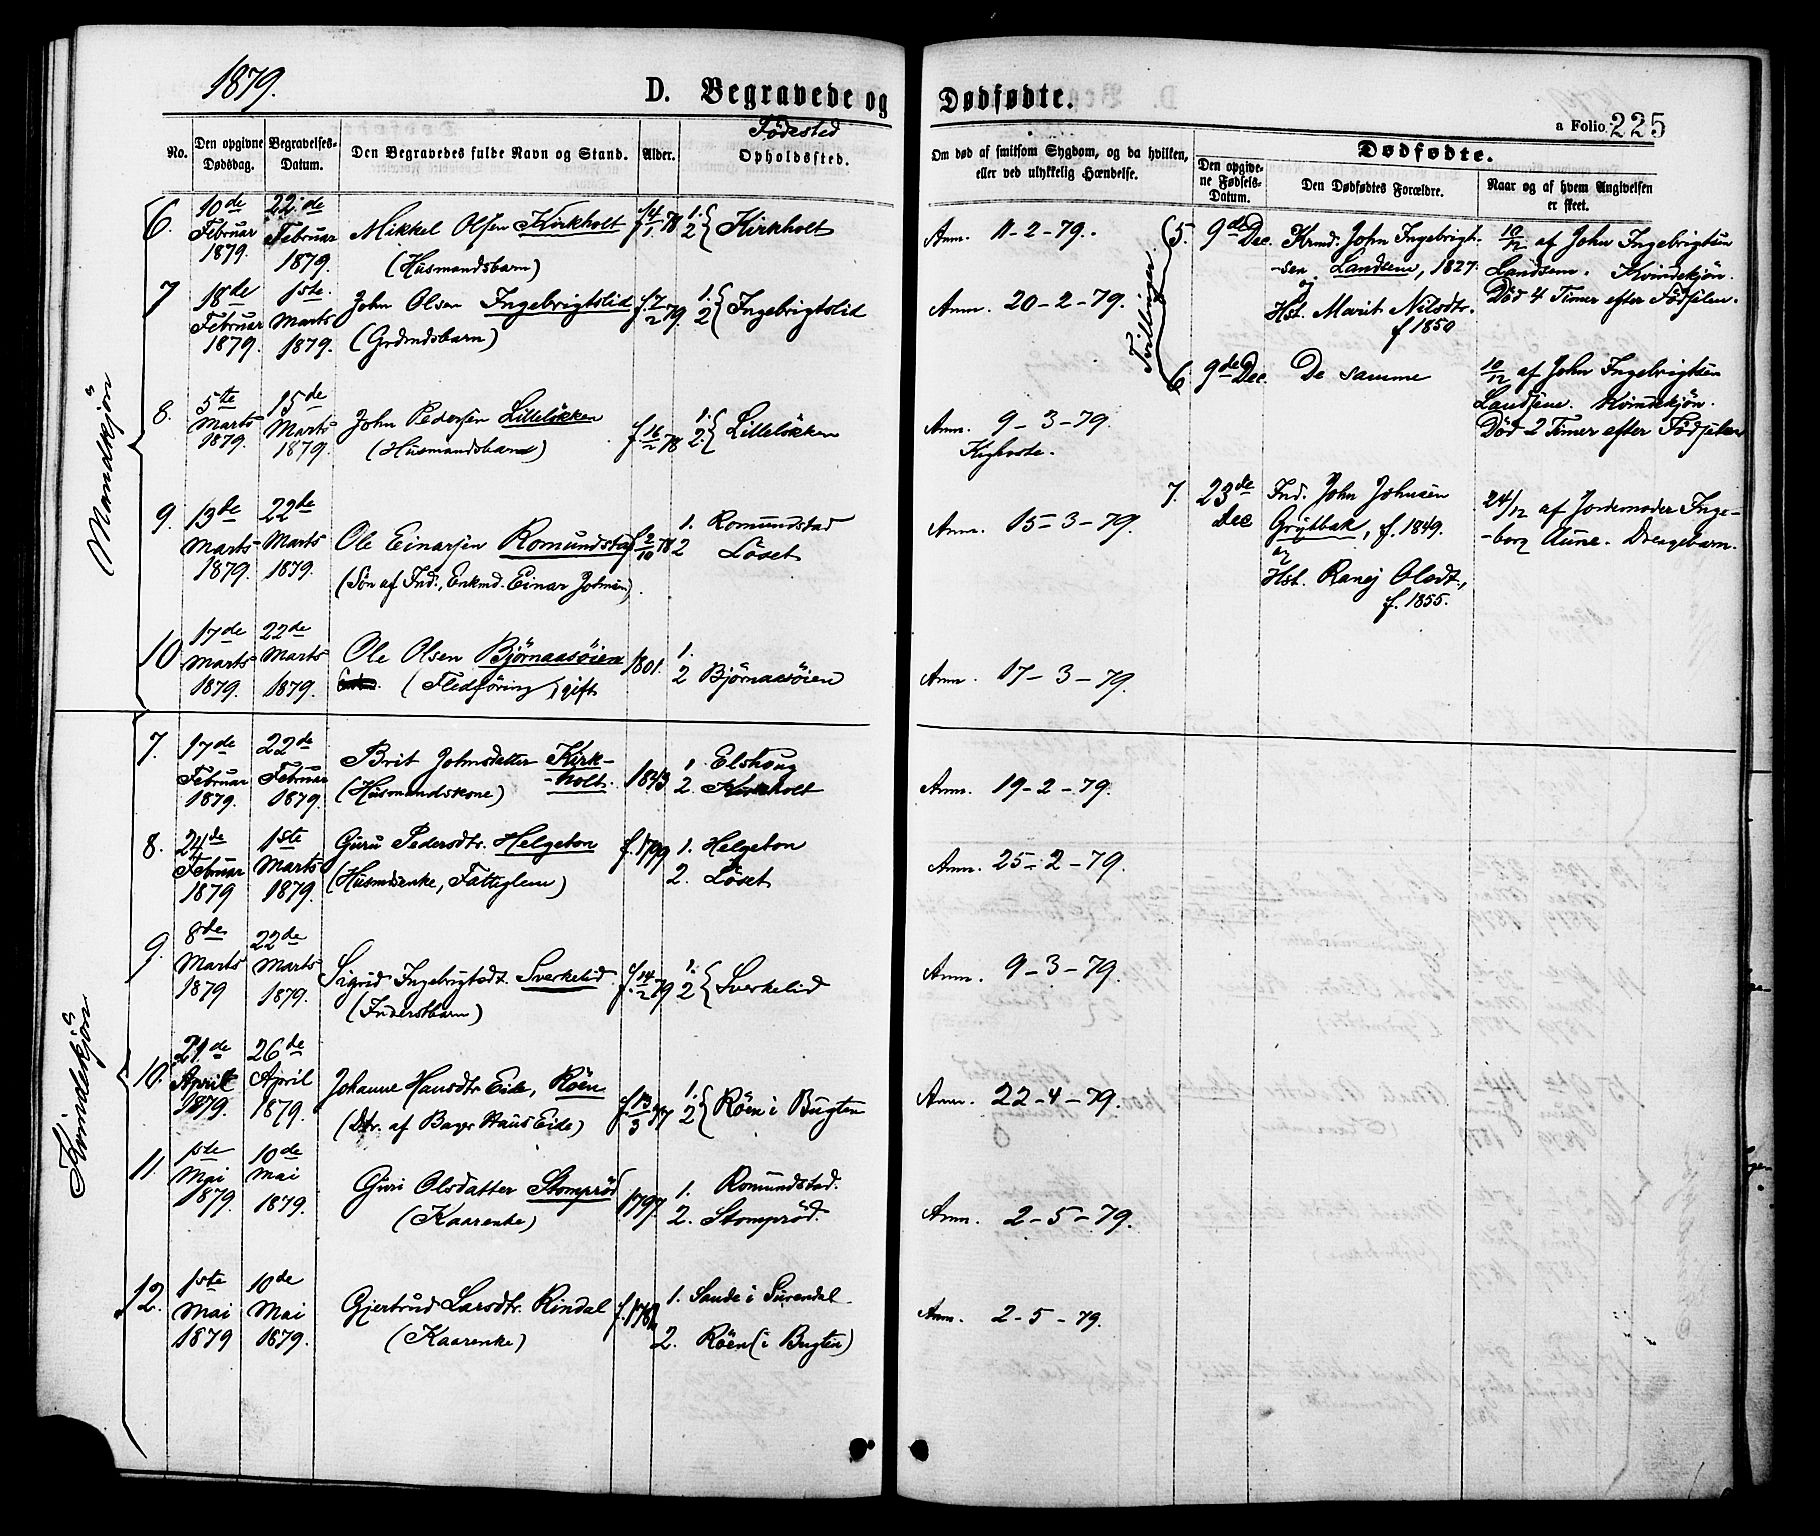 1879.
D. Begravede og Dødfødte.
a Folio 225
No.
Den opgivne Dødsdag.
Begravelses-Datum.
Den Begravedes fulde Navn og Stand.
Alder.
Fødested
Opholdssted.
Om død af smitsom Sygdom, og da hvilken,
eller ved ulykkelig Hændelse.
Dødfødte.
Den opgivne Fødsels-Datum.
Den Dødfødtes Forældre.
Naar og af hvem Angivelsen
er skeet.
Mandkjön
6.
10de Februar 1879.
22de Februar 1879.
Mikkel Olsen Kirkholt
(Husmandsbarn)
f. 4/1 78
1.
2 Kirkholt
Anm. 11-2-79.
7
18de Februar 1879.
1ste Marts 1879.
John Olsen Ingebrigtslid
(Grdmdsbarn)
f. 7/2 79.
1.
2 Ingebrigtslid
Anm. 20-2-79.
8.
5te Marts 1879.
15de Marts 1879.
John Pedersen Lillelökken
(Husmandsbarn)
f. 16/2 78
1.
2. Lillelökken
Anm. 9-3-79.
Kighoste.
9.
13de Marts 1879.
22de Marts 1879.
Ole Einarsen Romundstad
(Sön af Ind., Enkmd. Einar Johnsen)
f. 2/10 78
1. Romundstad
2 Löset
Anm. 15-3-79.
10
17de Marts 1879.
22de Marts 1879.
Ole Olsen Björnaasöien
(Fledföring) gift
1801.
1.
2 Björnaasöien
Anm. 17-3-79.
Kvindekjön
7.
17de Februar 1879.
22de Februar 1879.
Brit Johnsdatter Kirk-
-holt.
(Husmandskone)
1843
1. Elshoug
2. Kirkholt
Anm. 19-2-79.
8.
24de Februar 1879
1ste Marts 1879.
Guru Pedersdtr. Helgeton
(Husmdsenke, Fattiglem)
f. 1799
1. Helgeton
2. Löset
Anm. 25-2-79.
9.
8de Marts 1879
22de Marts 1879.
Sigrid Ingebrigtsdt. Sverkelid
(Inderstbarn)
f. 14/2 79
1.
2 Sverkelid
Anm. 9-3-79.
10.
21de April 1879.
26de April 1879.
Johanne Hansdtr Eide, Röen
(Dtr. af Bager Hans Eide)
f. 13/3 77
1.
2 Röen i Bugten
Anm. 22-4-79.
11.
1ste Mai 1879.
10de Mai 1879.
Guri Olsdatter Stompröd
(Kaarenke)
1797
1. Romundstad.
2. Stompröd.
Anm. 2-5-79.
12.
1ste Mai 1879
10de Mai 1879.
Gjertrud Larsdtr. Rindal
(Kaarenke)
1. Sande i Surendal
2. Röen (i Bugten)
Anm. 2-5-79.
Tvillinger
5.
9de Dec.
Krmd. John Ingebrigt-
-sen Landsem, 1827.
og
Hst. Marit Nilsdtr.
f 1850
10/12 af John Ingebrigtsen
Landsem. Kvindekjön.
Död 4 Timer efter Födselen.
6
9de Dec.
De samme
10/12 af John Ingebrigtsen
Landsem. Kvindekjön.
Död 2 Timer efter Födselen
7.
23de Dec
Ind. John Johnsen
Grytbak, f. 1849.
og
Hst. Ranej Olsdt.,
f. 1855.
24/12 af Jordemoder Inge-
-borg Aune. Drengebarn.